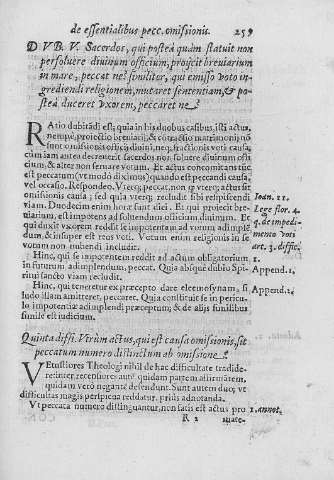 de essentialibus pecc. omissionis. 259
DVBV. Sacerdos, qui posteà quàm statuit non
persoluere diuinum officium, proijcit breuiarium
in mare, peccat ne? similiter, qui emisso voto in-
grediendi religionem, mutaret sententiam, & po-
steà duceret vxorem, peccaret ne?
RAtio dubitãdi est, quia in his duobus casibus, isti actus,
nempè, proiectio breuiarij, & cõtractio matrimonij nõ
sunt omissionis officij diuini, nec, fractionis voti causa,
cum iam autea decreuerit sacerdos non soluere diuinum offi-
cium, & alter non seruare votum. Et actus concomitans tũc
est peccatum (vt modò diximus) quando est peccandi causa,
vel occasio. Respondeo. Vterq; peccat, non vterq; actus sit
omissionis causa, sed quia vterq; recludit sibi resipiscendi
viam. Duodecim enim horæ sunt diei. Et qui projecit bre-
uiarium, est impotens ad soluendum officium diuinum. Et
qui duxit vxorem reddit se impotentem ad votum adimplẽ-
dum, & insuper est reus voti. Votum enim religionis in se
votum non nubendi includit.
Ioan. 11.
Lege flor. 4.
q. de impedi-
mento voti
art. 3. diffic.
1.
Hinc, qui se impotentem reddit ad actum obligatorium
in futurum adimplendum, peccat. Quia absque dubio Spi-
ritui sancto viam recludit.
Append. 1.
Hinc, qui teneretur ex præcepto dare eleemosynam, si
ludo illam amitteret, peccaret. Quia constituit se in pericu-
lo, impotentiæ adimplendi præceptum; & de alijs similibus
simile est iudicium.
Append. 2.
Quinta diffi. Vtrùm actus, qui est causa omissionis, sit
peccatum numero distinctum ab omissione?
VEtustiores Theologi nihil de hac difficultate tradide-
re: inter recensiores autẽ quidam partem affirmatem,
quidam verò negantẽ defendunt. Sunt autem duæ, vt
difficultas magis perspicua reddatur, priùs adnotanda.
Vt peccata numero distinguantur, non satis est actus pro
1. annot.
R 2 mate-